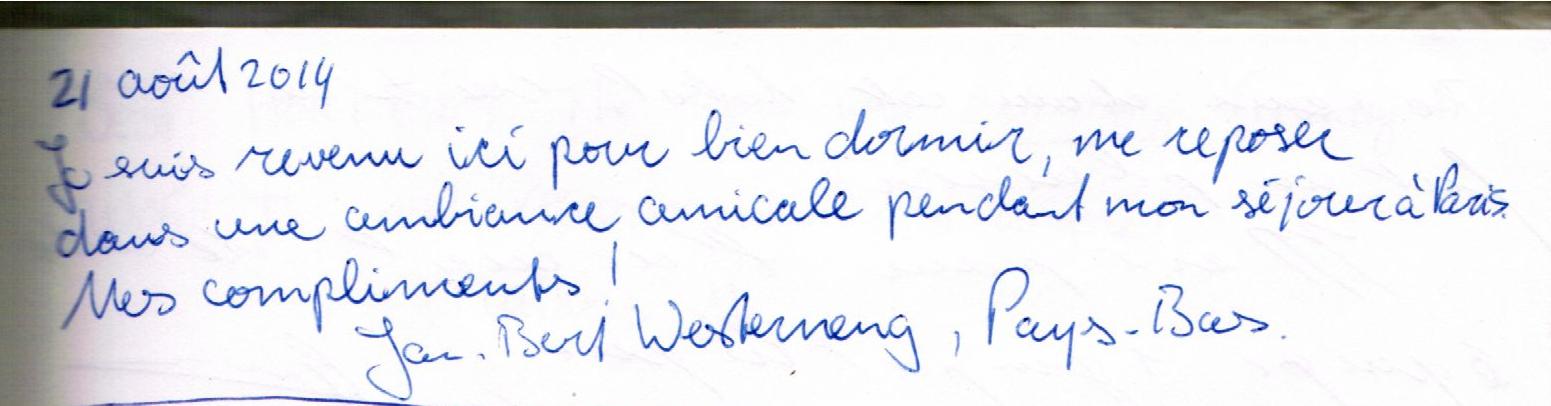 21 août 2014
Je suis revenu ici pour bien dormir, me reposer
dans une ambiance amicale pendant mon séjour à Paris.
Mes compliments!
Jan-Bert , Pays-Bas.